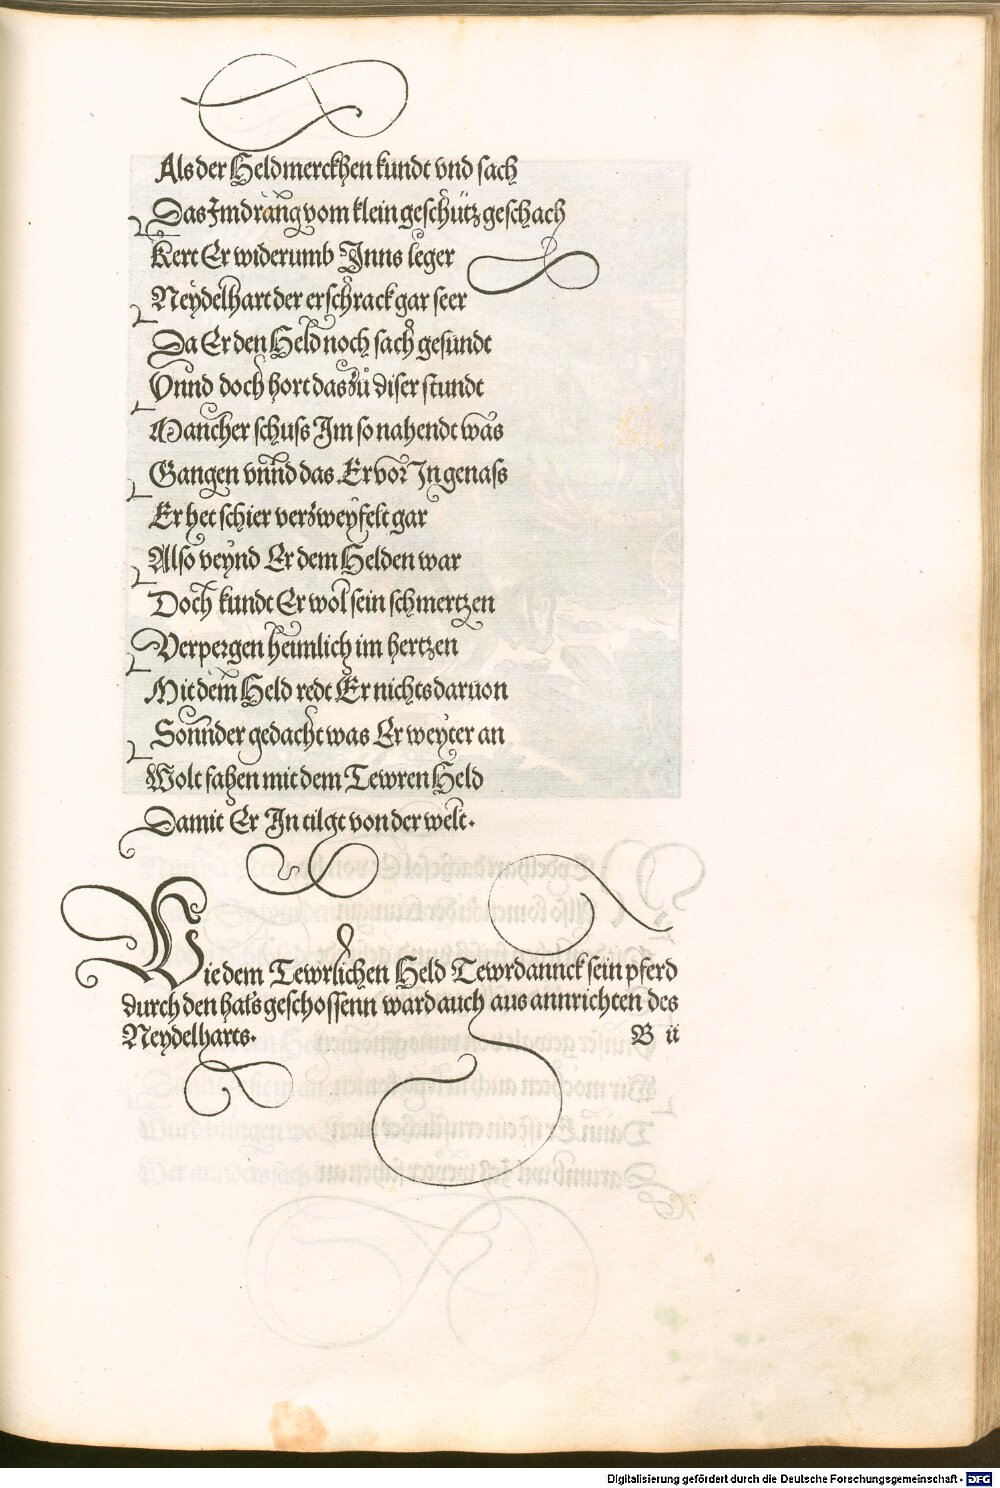 Als der Held merckhen kundt vnd sach
Das Im drang vom klein geschütz geschach
Kert Er widerumb Inns leger
Neydelhart der erschrack gar seer
Da Er den Held noch sach gesundt
Vnnd doch hort das zů diser stundt
Mancher schuss Im so nahendt was
Gangen vnnd das Er vor In genass
Er het schier verzweyfelt gar
Also veynd Er dem Helden war
Doch kundt Er wol sein schmertzen
Verpergen heimlich im hertzen
Mit dem Held redt Er nichts daruon
Sonnder gedacht was Er weyter an
Wolt fahen mit dem Tewren Held
Damit Er In tilgt von der welt.
Wie dem Tewrlichen Held Tewrdannck sein pferd
durch den hals geschossenn ward auch aus annrichten des
Neydelharts. B ii
Digitalisierung gefördert durch die Deutsche Forschungsgemeinschaft - DFG